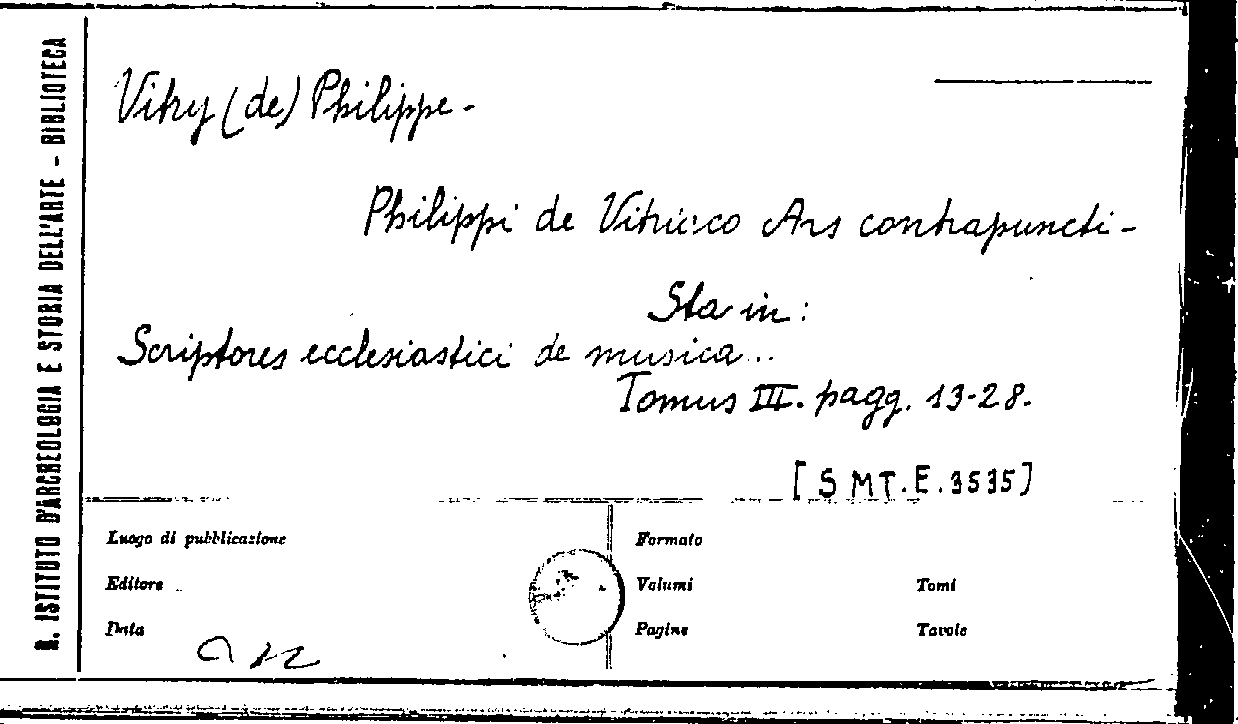 R. ISTITUTO D'ARCHEOLOGIA E STORIA DELL'ARTE - BIBLIOTECA
Vitry (de) Philippe -
Philippi de Vitriaco Ars contrapuncti -
Sta in:
Scriptores ecclesiastici de musica...
Tomus III. pagg. 13-28.
[S MT.E.3535]
Luogo di pubblicazione
Editore
Data
Formato
Volumi Tomi
Pagine Tavole